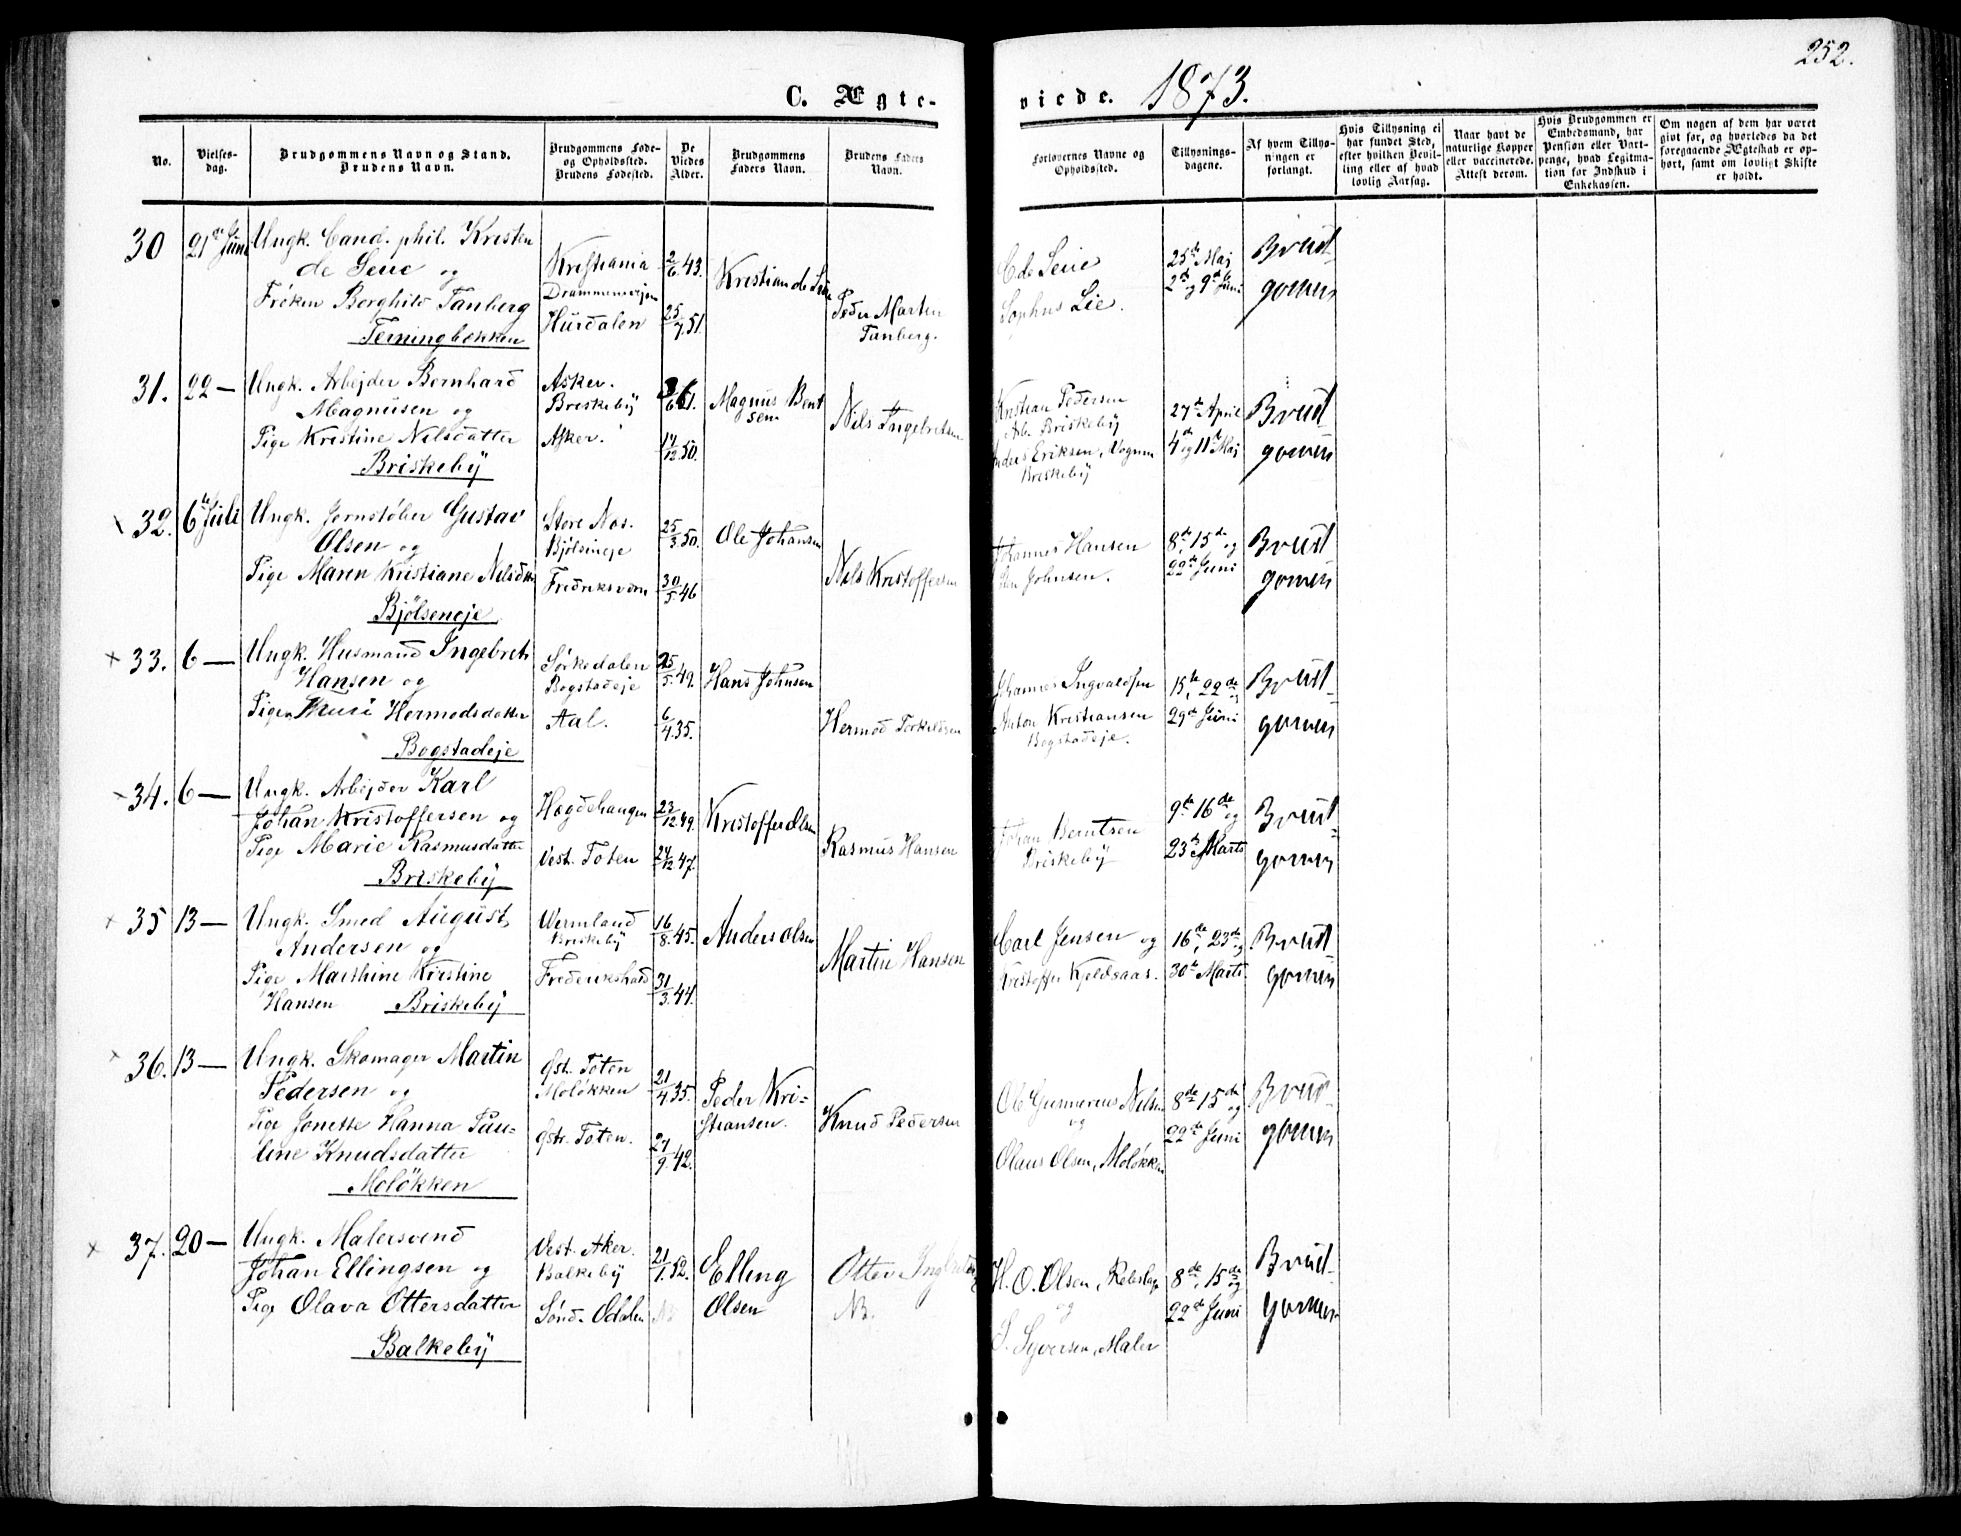 252.
C. Ægte-
viede. 1873.
No.
Vielses-
dag.
Brudgommens Navn og Stand.
Brudens Navn.
Brudgommens Føde-
og Opholdssted.
Brudens Fødested.
De
Viedes
Alder.
Brudgommens
Faders Navn.
Brudens Faders
Navn.
Forlovernes Navne og
Opholdssted.
Tillysnings-
dagene.
Af hvem Tillys-
ningen er
forlangt.
Hvis Tillysning ei
har fundet Sted,
efter hvilken Bevil-
ling eller af hvad
lovlig Aarsag.
Naar havt de
naturlige Kopper
eller vaccinerede.
Attest derom.
Hvis Brudgommen er
Embedsmand, har
Pension eller Vart-
penge, hvad Legitima-
tion for Indskud i
Enkekassen.
Om nogen af dem har været
givt før, og hvorledes da det
foregaaende Ægteskab er op-
hørt, samt om lovligt Skifte
er holdt.
30
21de Juni
Ungk. Cand. phil. Kristen
de Seue og
Frøken Borghild Tanberg
Terningbekken
Kristiania
Drammensvejen
Hurdalen
2/6 43.
25/7 51.
Kristian de Seue
Peder Martin
Tanberg.
C de Seue
Sophus Lie.
25de Maj
2den og 9de Juni
Brud-
gomen
31.
22 —
Ungk. Arbejder Bernhard
Magnusen og
Pige Kristine Nilsdatter
Briskeby
Asker.
Briskeby
Asker.
17/12 50.
Magnus Bent
sen
Nils Ingebretsen
Kristian Pedersen
Arb. Briskeby
Anders Eriksen, Vognm
Briskeby
27de April
4de og 11te Maj
Brud
gomen
32.
6te Juli
Ungk. Jernstøber Gustav
Olsen og
Pige Maren Kristiane Nilsdtr
Bjølseneje
Store Nos.
Bjølseneje
Fredriksværn
25/3 50.
30/5 46
Ole Johansen
Nils Kristoffersen
Johannes Hansen
Johnsen.
8de, 15de og
22de Juni
Brud
gomen
33.
6 —
Ungk. Husmand Ingebret
Hansen og
Pigen Thuri Hermodsdatter
Bogstadeje
Sørkedalen
Bogstadeje
Aal.
25/5 49.
6/4 35.
Hans Johnsen
Hermod Torkildsen
Johannes Ingvaldsen
Anton Kristiansen
Bogstadeje.
15de, 22de og
29de Juni
Brud-
gomen
34.
6 —
Ungk. Arbejder Karl
Johan Kristoffersen og
Pige Marie Rasmusdatter
Briskeby
Hægdehaugen
Vest. Toten
23/12 49.
24/12 47.
Kristoffer Olsen
Rasmus Hansen
Johan Berntsen
Briskeby
9de 16de og
23de Marts
Brud-
gomen
35
13 —
Ungk. Smed August
Andersen og
Pige Marthine Kristine
Hansen Briskeby
Wermland
Briskeby
Frederikshald
16/8 45.
31/3 44.
Anders Olsen
Martin Hansen
Carl Jensen og
Kristoffer Kjeldsaas.
16de, 23de og
30te Marts
Brud-
gomen
36.
13 —
Ungk. Skomager Martin
Pedersen og
Pige Jonette Hanna Pau-
line Knudsdatter
Moløkken
Øst. Toten
Moløkken
Øst. Toten.
21/4 35.
27/9 42.
Peder Kri-
stiansen.
Knud Pedersen
Ole Gunnerius Nilsen
og
Olaus Olsen, Moløkken
8de 15de og
22de Juni
Brud-
gomen
37.
20 —
Ungk. Malersvend
Johan Ellingsen og
Pige Olava Ottersdatter
Balkeby
Vest. Aker.
Balkeby
Sønd. Odalen
21/1 52.
NB
Elling
Olsen
Otter
NB.
H. O. Olsen, Rebslag
og
S. Syversen, Maler
8de, 15de og
22de Juni
Brud-
gomen